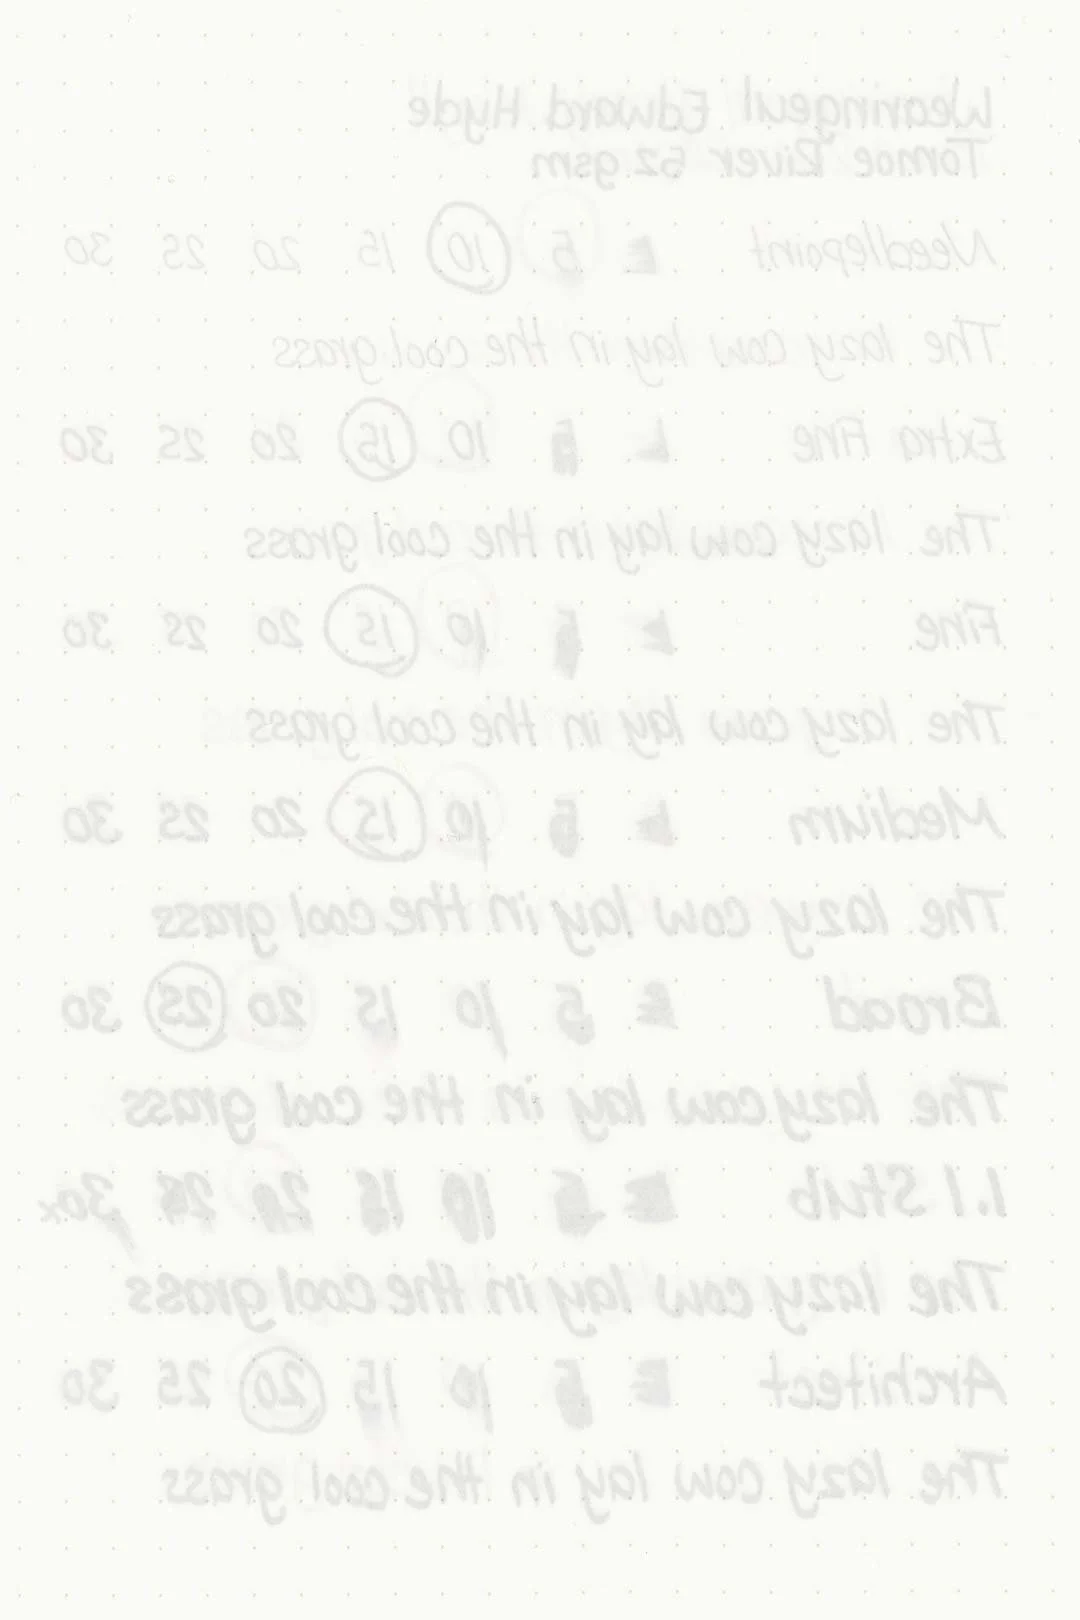 Wearingeul Edward Hyde
Tomoe River 52 gsm
Needlepoint 5 10 15 20 25 30
The lazy cow lay in the cool grass
Extra Fine 1 5 10 15 20 25 30
The lazy cow lay in the cool grass
Fine 1 5 10 15 20 25 30
The lazy cow lay in the cool grass
Medium 1 5 10 15 20 25 30
The lazy cow lay in the cool grass
Broad 5 10 15 20 25 30
The lazy cow lay in the cool grass
1.1 Stub 5 10 15 20 25 30x
The lazy cow lay in the cool grass
Architect 5 10 15 20 25 30
The lazy cow lay in the cool grass